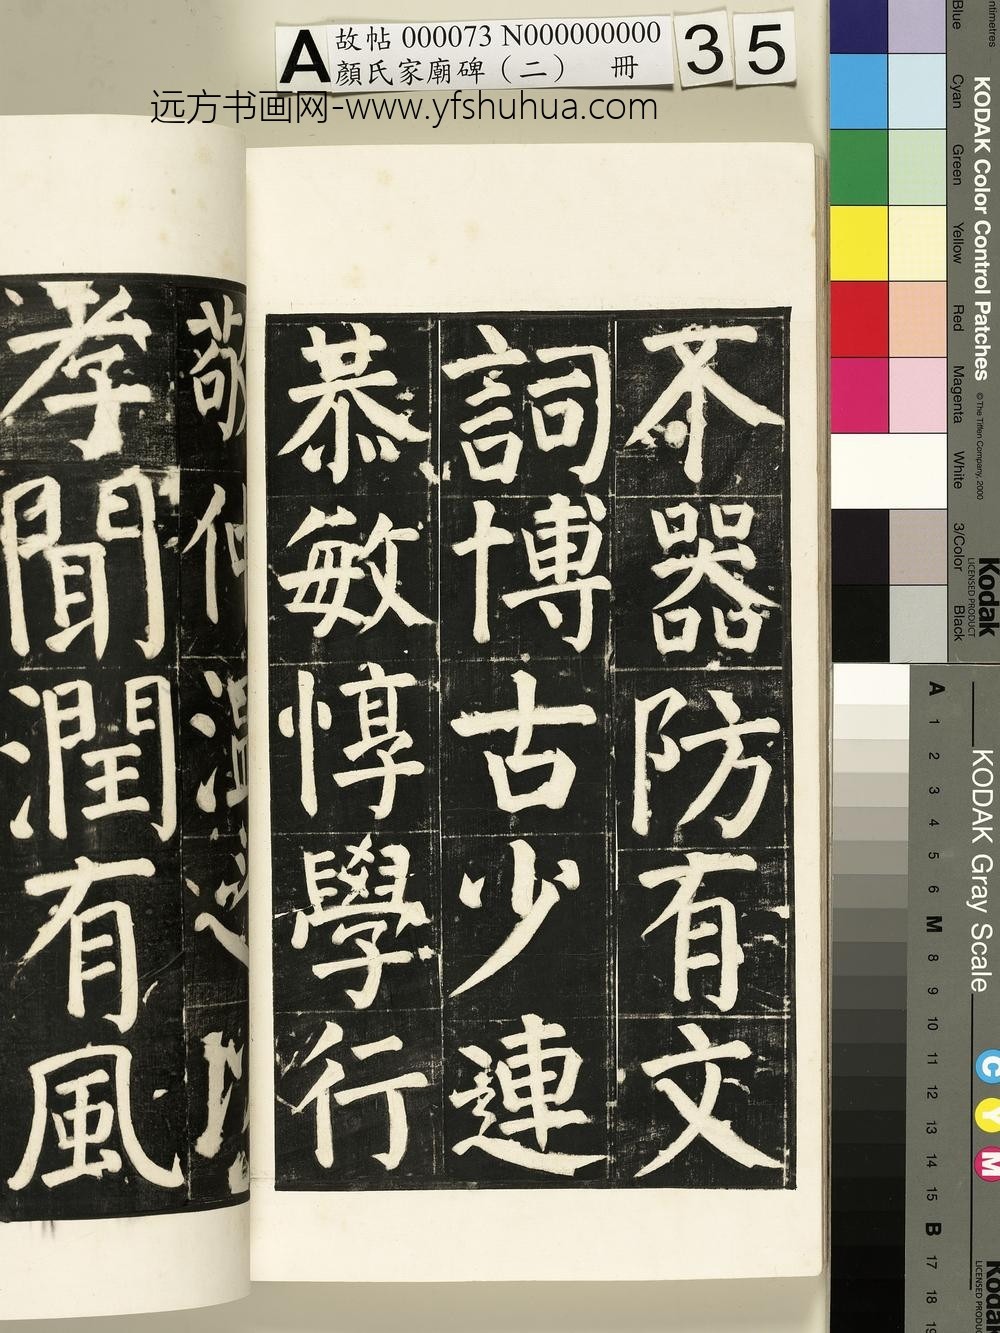 A
故帖 000073 N000000000
顏氏家廟碑（二） 冊
35
远方书画网-www.yfshuhua.com
不器防有文
詞博古少連
恭敏惇學行
孝聞潤有風
Blue
Cyan
Green
Yellow
Red
Magenta
White
3/Color
Black
KODAK Color Control Patches
© The Tiffen Company, 2000
Kodak
LICENSED PRODUCT
KODAK Gray Scale
A
1
2
3
4
5
6
M
8
9
10
11
12
13
14
15
B
17
18
19
C
Y
M
Kodak
LICENSED PRODUCT